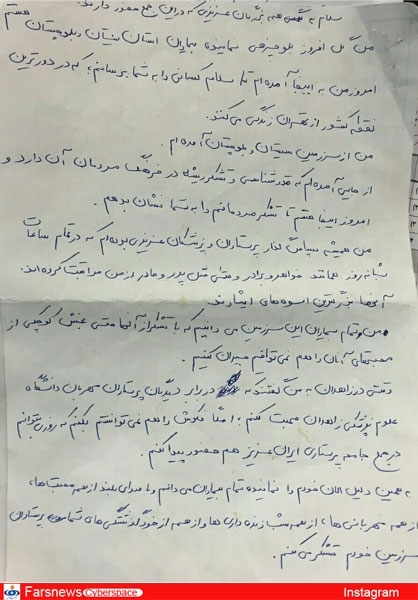 سلام به همه بزرگان عزیزی که در این جمع حضور دارند.
من گل افروز بلوچزهی نماینده بیماران استان سیستان و بلوچستان هستم
امروز من به اینجا آمده ام تا سلام کسانی را به شما برسانم، که در دورترین
نقطه کشور از تهران زندگی می کنند.
من از سرزمین سیستان و بلوچستان آمده ام.
از جایی آمده ام که قدرشناسی و تشکر ریشه در فرهنگ مردمان آن دارد و
امروز اینجا هستم تا تشکر مردمانم را به شما نشان بدهم.
من همیشه سپاس گذار پرستاران و پزشکان عزیزی بوده ام که در تمام ساعات
شبانه روز همانند خواهر و برادر و حتی مثل پدر و مادر از من مراقبت کرده اند.
آنها بزرگترین اسوه های ایثارند.
من و تمام بیماران این سرزمین می دانیم که با تشکر از آنها حتی بخش کوچکی از
محبتهای آنان را هم نمی توانیم جبران کنیم.
وقتی در زاهدان به من گفتند که در برابر دیدگان پرستاران مهربان دانشگاه
علوم پزشکی زاهدان صحبت کنم؛ اصلا فکرش را هم نمی توانستم بکنم که روزی بتوانم
در جمع جامعه پرستاری ایران عزیز هم حضور پیدا کنم.
به همین دلیل الان خودم را نماینده تمام بیماران می دانم و با صدای بلند از همه محبت ها،
از همه مهربانی ها، از همه شب زنده داری ها و از همه از خود گذشتگی های تمامی پرستاران
سرزمین خودم تشکر می کنم.
Farsnews Cyberspace
Instagram